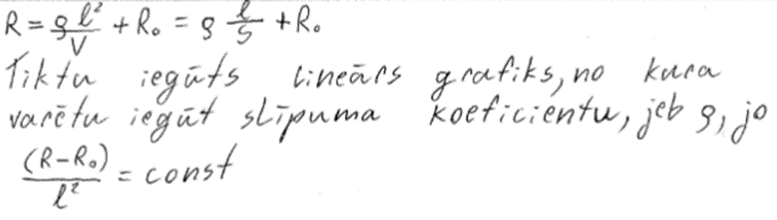 R = ρ l²/V + R₀ = ρ l/S + R₀
Tiktu iegūts lineārs grafiks, no kura
varētu iegūt slīpuma koeficientu, jeb ρ, jo
(R-R₀)/l² = const